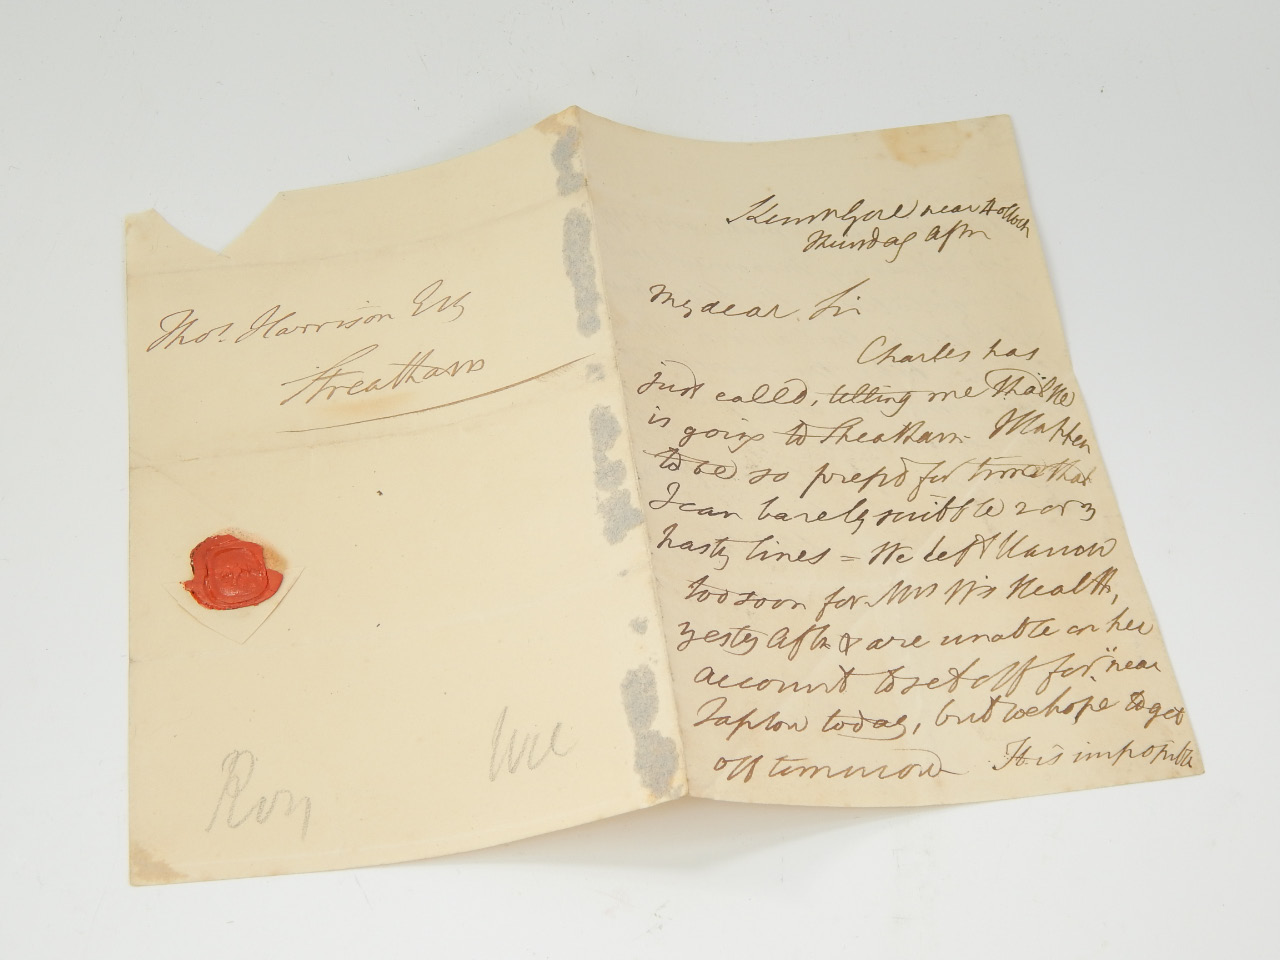 Thos. Harrison Esq
Streatham
Kenn Gore near 4 oClock
Thursday Aftn
My dear Sir
Charles has
just called, telling me that He
is going to Streatham. I happen
to be so prepd for time that
I can barely scribble 2 or 3
hasty lines = We left Harrow
too soon for Mrs W's Health,
yesty Aftn & are unable on her
account to set off for "near
Taplow today, but we hope to get
off tomorrow It is impossible